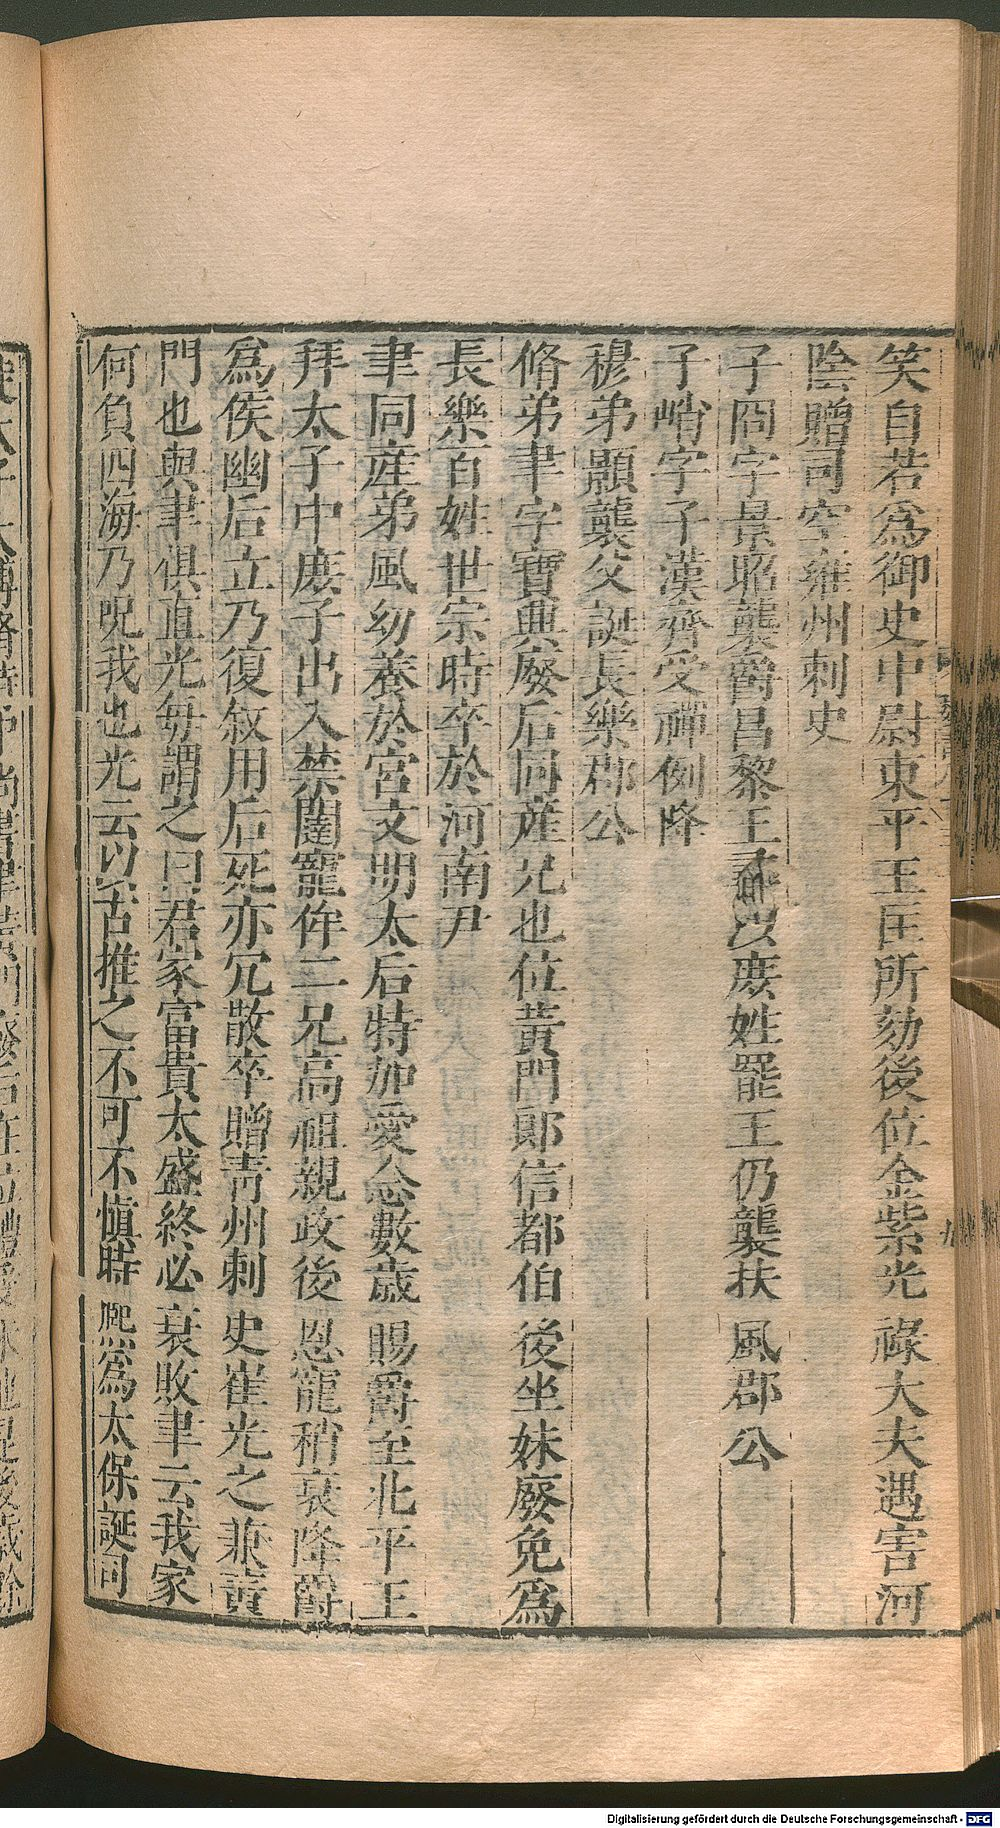 笑自若爲御史中尉東平王匡所劾後位金紫光祿大夫遇害河
陰贈司空雍州刺史
子冏字景昭襲爵昌黎王尋以庶姓罷王仍襲扶風郡公
子峭字子漢齊受禪例降
穆弟顥襲父誕長樂郡公
脩弟聿字寶興廢后同產兄也位黃門郎信都伯後坐妹廢免爲
長樂百姓世宗時卒於河南尹
聿同產弟風幼養於宮文明太后特加愛念數歲賜爵至北平王
拜太子中庶子出入禁闥寵侔二兄高祖親政後恩寵稍衰降爵
爲侯幽后立乃復敘用后死亦冗散卒贈青州刺史崔光之兼黃
門也與聿俱直光每謂之曰君家富貴太盛終必衰敗聿云我家
何負四海乃呪我也光云以古推之不可不慎時熙爲太保誕司
Digitalisierung gefördert durch die Deutsche Forschungsgemeinschaft - DFG